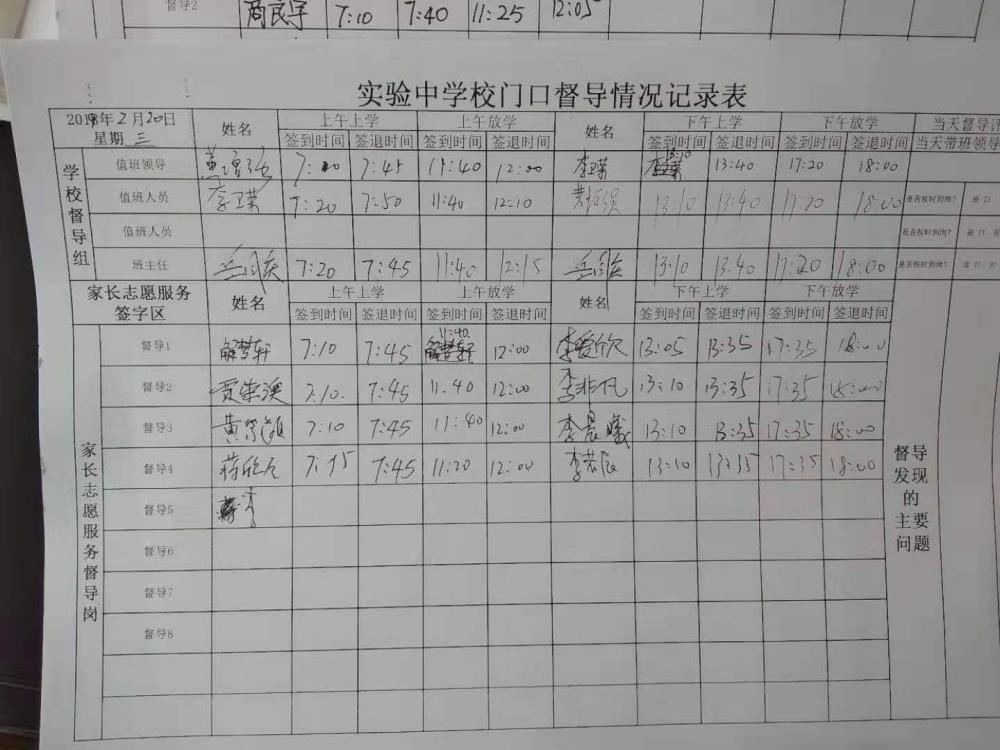 督导2 商良宇 7:10 7:40 11:25 12:05
实验中学校门口督导情况记录表
2019年2月20日
星期 三
姓名 上午上学 上午放学 姓名 下午上学 下午放学 当天督导评
签到时间 签退时间 签到时间 签退时间 签到时间 签退时间 签到时间 签退时间 当天带班领导
学校督导组
值班领导 7:45 11:40 12:00 13:10 13:40 17:20 18:00
值班人员 7:20 7:50 11:40 12:10 13:10 13:40 17:20 18:00 是否按时到岗? 是 口
值班人员 是否按时到岗? 是 口 否
班主任 7:20 7:45 11:40 12:15 13:10 13:40 17:20 18:00 是否按时到岗? 是 口 否
家长志愿服务
签字区
姓名 上午上学 上午放学 姓名 下午上学 下午放学
签到时间 签退时间 签到时间 签退时间 签到时间 签退时间 签到时间 签退时间
家长志愿服务督导岗
督导1 解梦轩 7:10 7:45 11:40 解梦轩 12:00 李爱欣 13:05 13:35 17:35 18:00
督导2 7:10 7:45 11:40 12:00 李非凡 13:10 13:35 17:35 18:00
督导3 7:10 7:45 11:40 12:00 李晨曦 13:10 13:35 17:35 18:00
督导4 7:15 7:45 11:20 12:00 李若辰 13:10 13:35 17:35 18:00
督导5
督导6
督导7
督导8
督导
发现
的
主要
问题